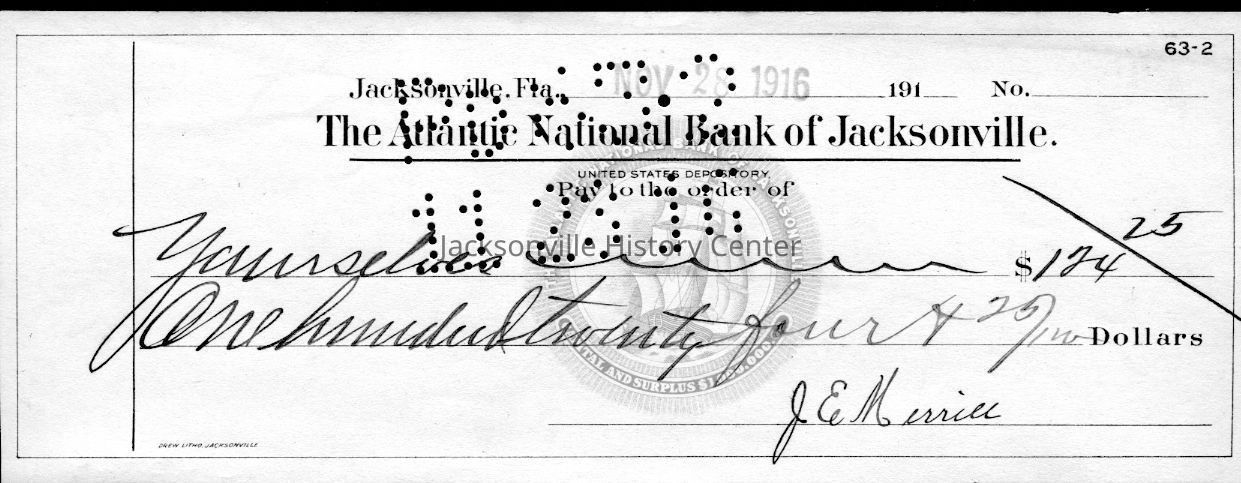 63-2
Jacksonville, Fla., NOV 28 1916 191 No.
The Atlantic National Bank of Jacksonville.
UNITED STATES DEPOSITORY,
Pay to the order of
Jacksonville History Center
Yourselves $124 25
One hundred twenty four & 25/100 Dollars
AND SURPLUS
J E Merrill
DREW LITHO. JACKSONVILLE